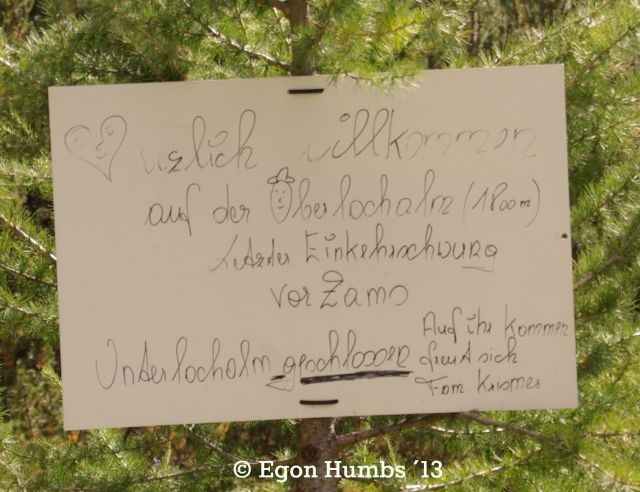 zlich willkommen
auf der Oberlochalm (1800m)
Letzter Einkehrschwung
vor Zams
Unterlochalm geschlossen
Auf ihr Kommen
freut sich
Fam. Krismer
© Egon Humbs ´13